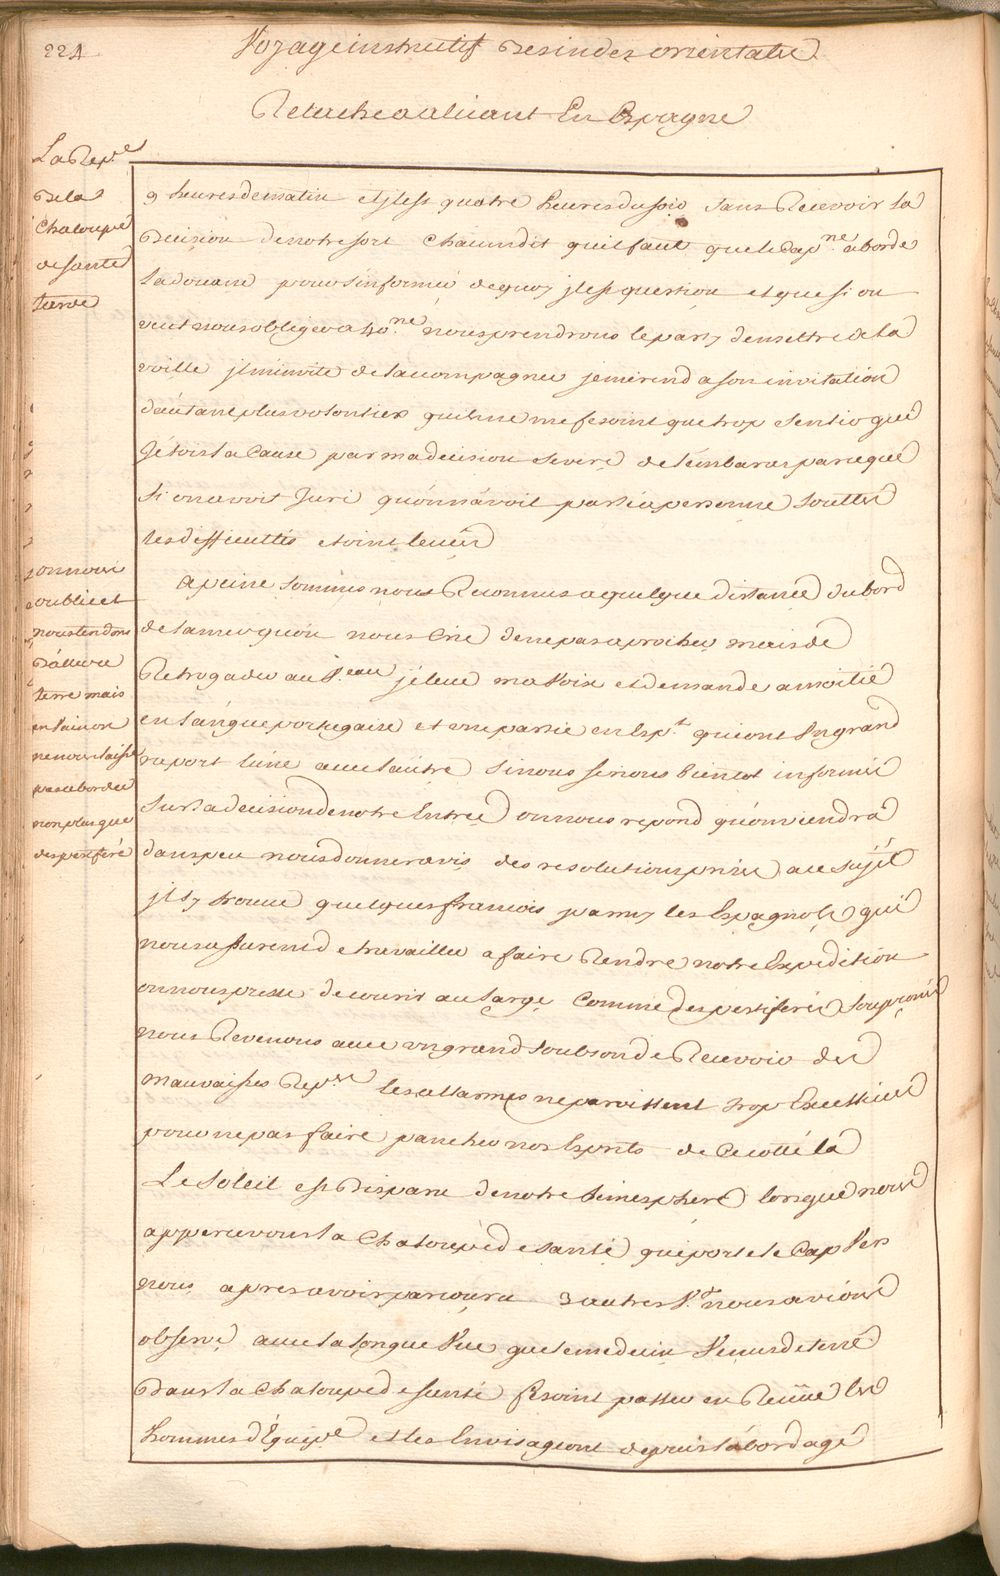 224
Voyage instructif Des indes orientalle
Relache a alicant En Espagne
La Rep.e
De la
Chaloupe
de santé
tarde
9 heures de matin et jl est quatre heures du soir sans Recevoir la
Decision de notre sort chacun dit quil faut que le Cap.ne aborde
la douane pour s'informé de quoy jl est question et que si on
veut nous obliger a 40.ne nous prendrons le party de mettre a la
voille jl m'invite de l'accompagner je me rend a son invitation
d'autant plus volontier quil ne me fesoint que trop sentir que
J'étois la Cause par ma decision severe de l'embaras parce que
si on avoit Juré qu'on n'avoit parlé a personne touttes
les difficultés etoint levées
on nous
oublie et
nous tendons
D'aller a
terre mais
en Vain on
ne nous laisse
pas aborder
non plus que
des pestiféré
a peine sommes nous Reconnus a quelque distance du bord
de la mer qu'on nous Crie de ne pas aprocher mais de
Retrogader au V.eau j'eleve ma Voix et demande a moitié
en langue portugaise et une partie en Esp.l qui ont Un grand
raport l'une avec l'autre si nous serons bientot informés
sur la decision de notre Entrée on nous repond qu'on viendra
dans peu nous donner avis des resolutions prises a ce sujét
jl s'y trouve quelques francois parmy les Espagnols qui
nous assurent de travailler a faire Rendre notre Expedition
on nous presse de courir au large Comme des pestiferés soupçonés
nous Revenons avec un grand soubson de Recevoir des
mauvaisses Rep.se les allarmes ne paroissent trop Excessives
pour ne pas faire pancher nos Esprits de ce cotté là
Le Soleil est Disparu de notre hemesphere lorsque nous
appercevons la Chaloupe de santé qui porte le Cap Vers
nous apres avoir parcouru 3 autres V.x nous avions
observé avec la longue Vue que le medecin Venus de terre
Dans la Chaloupe de santé fesoint passer en Revue les
hommes d'Équip.e et les Envisageont depuis l'abordage